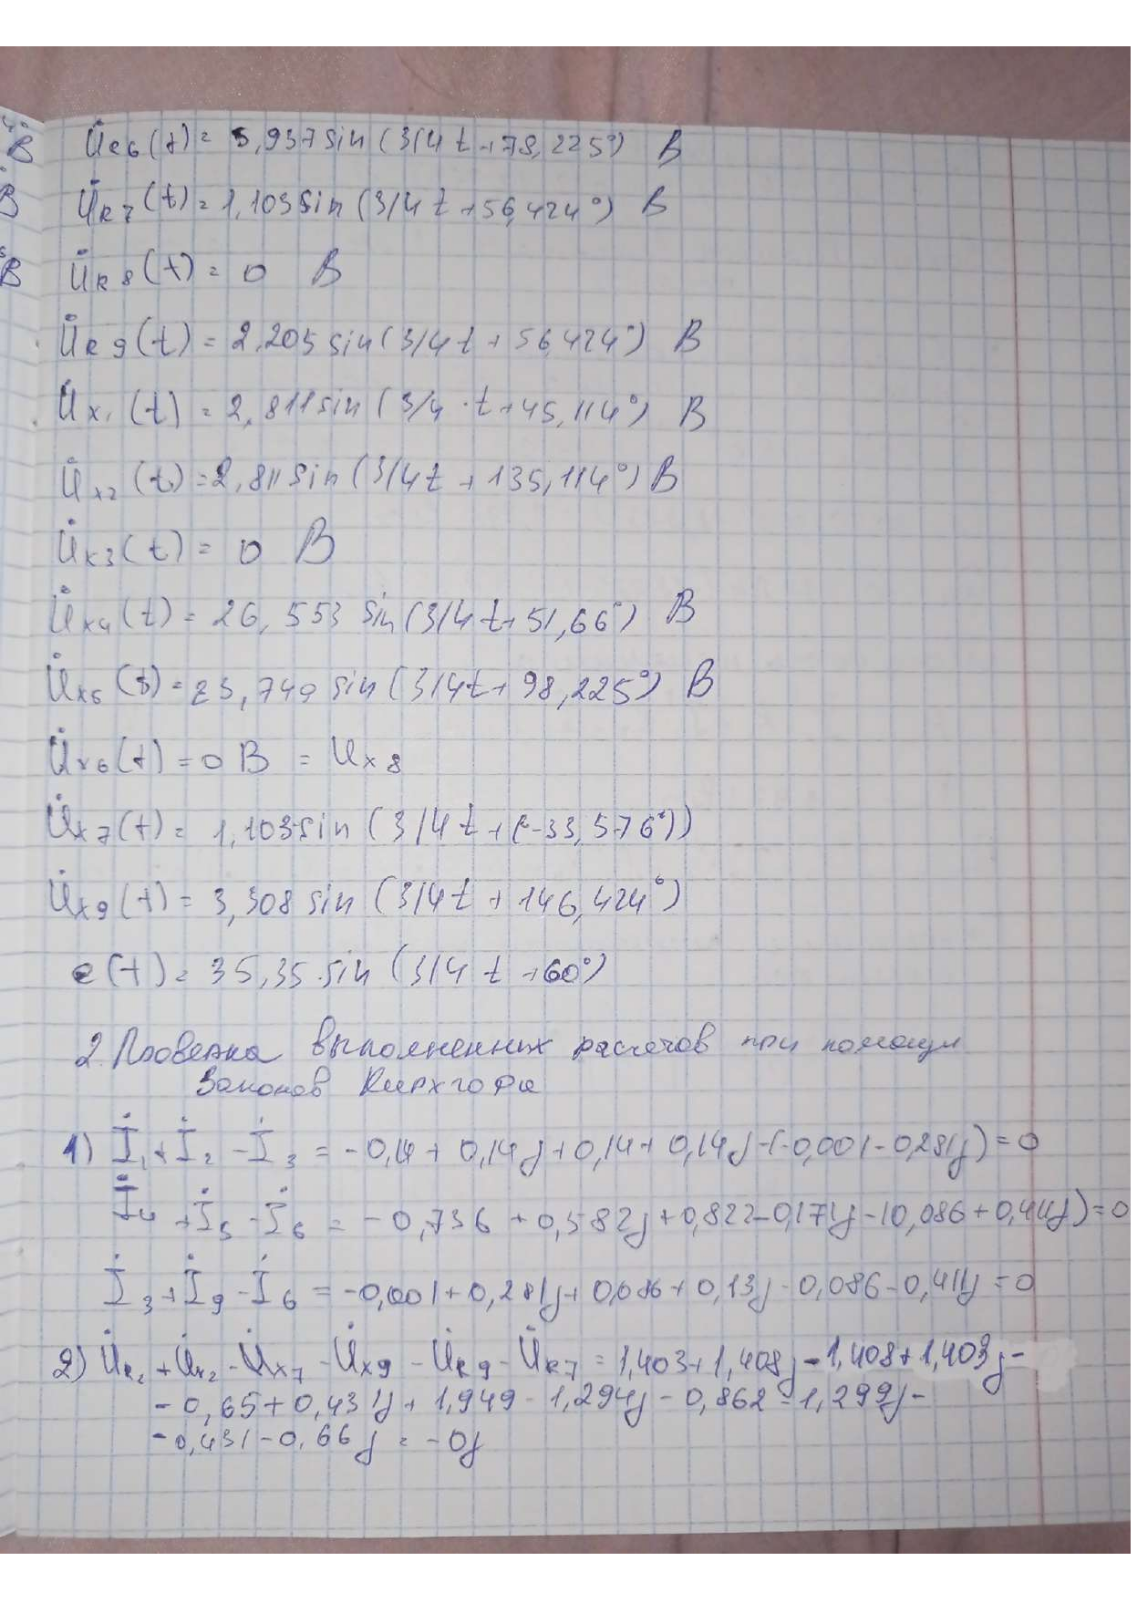 U̇R6(t) = 5,937 sin(314t+78,225°) В
U̇R7(t) = 1,103 sin(314t+56,424°) В
U̇R8(t) = 0 В
U̇R9(t) = 2,205 sin(314t+56,424°) В
U̇x1(t) = 2,811 sin(314·t+45,114°) В
U̇x2(t) = 2,811 sin(314t+135,114°) В
U̇x3(t) = 0 В
U̇x4(t) = 26,553 sin(314t+51,66°) В
U̇x5(t) = 23,749 sin(314t+98,225°) В
U̇x6(t) = 0 В = Ux8
U̇x7(t) = 1,103 sin(314t+(-33,576°))
U̇x9(t) = 3,308 sin(314t+146,424°)
e(t) = 35,35·sin(314t+60°)
2. Проверка выполненных расчетов при помощи
Законов Кирхгофа
1) İ1+İ2-İ3 = -0,14+0,14j+0,14+0,14j-(-0,001-0,281j)=0
İ4+İ5-İ6 = -0,736+0,582j+0,822-0,171j-(0,086+0,41j)=0
İ3+İ9-İ6 = -0,001+0,281j+0,086+0,13j-0,086-0,411j=0
2) U̇R2+U̇x2-U̇x7-U̇x9-U̇R9-U̇R7 = 1,403+1,408j-1,408+1,403j-
-0,65+0,431j+1,949-1,294j-0,862-1,299j-
-0,431-0,66j = -0j